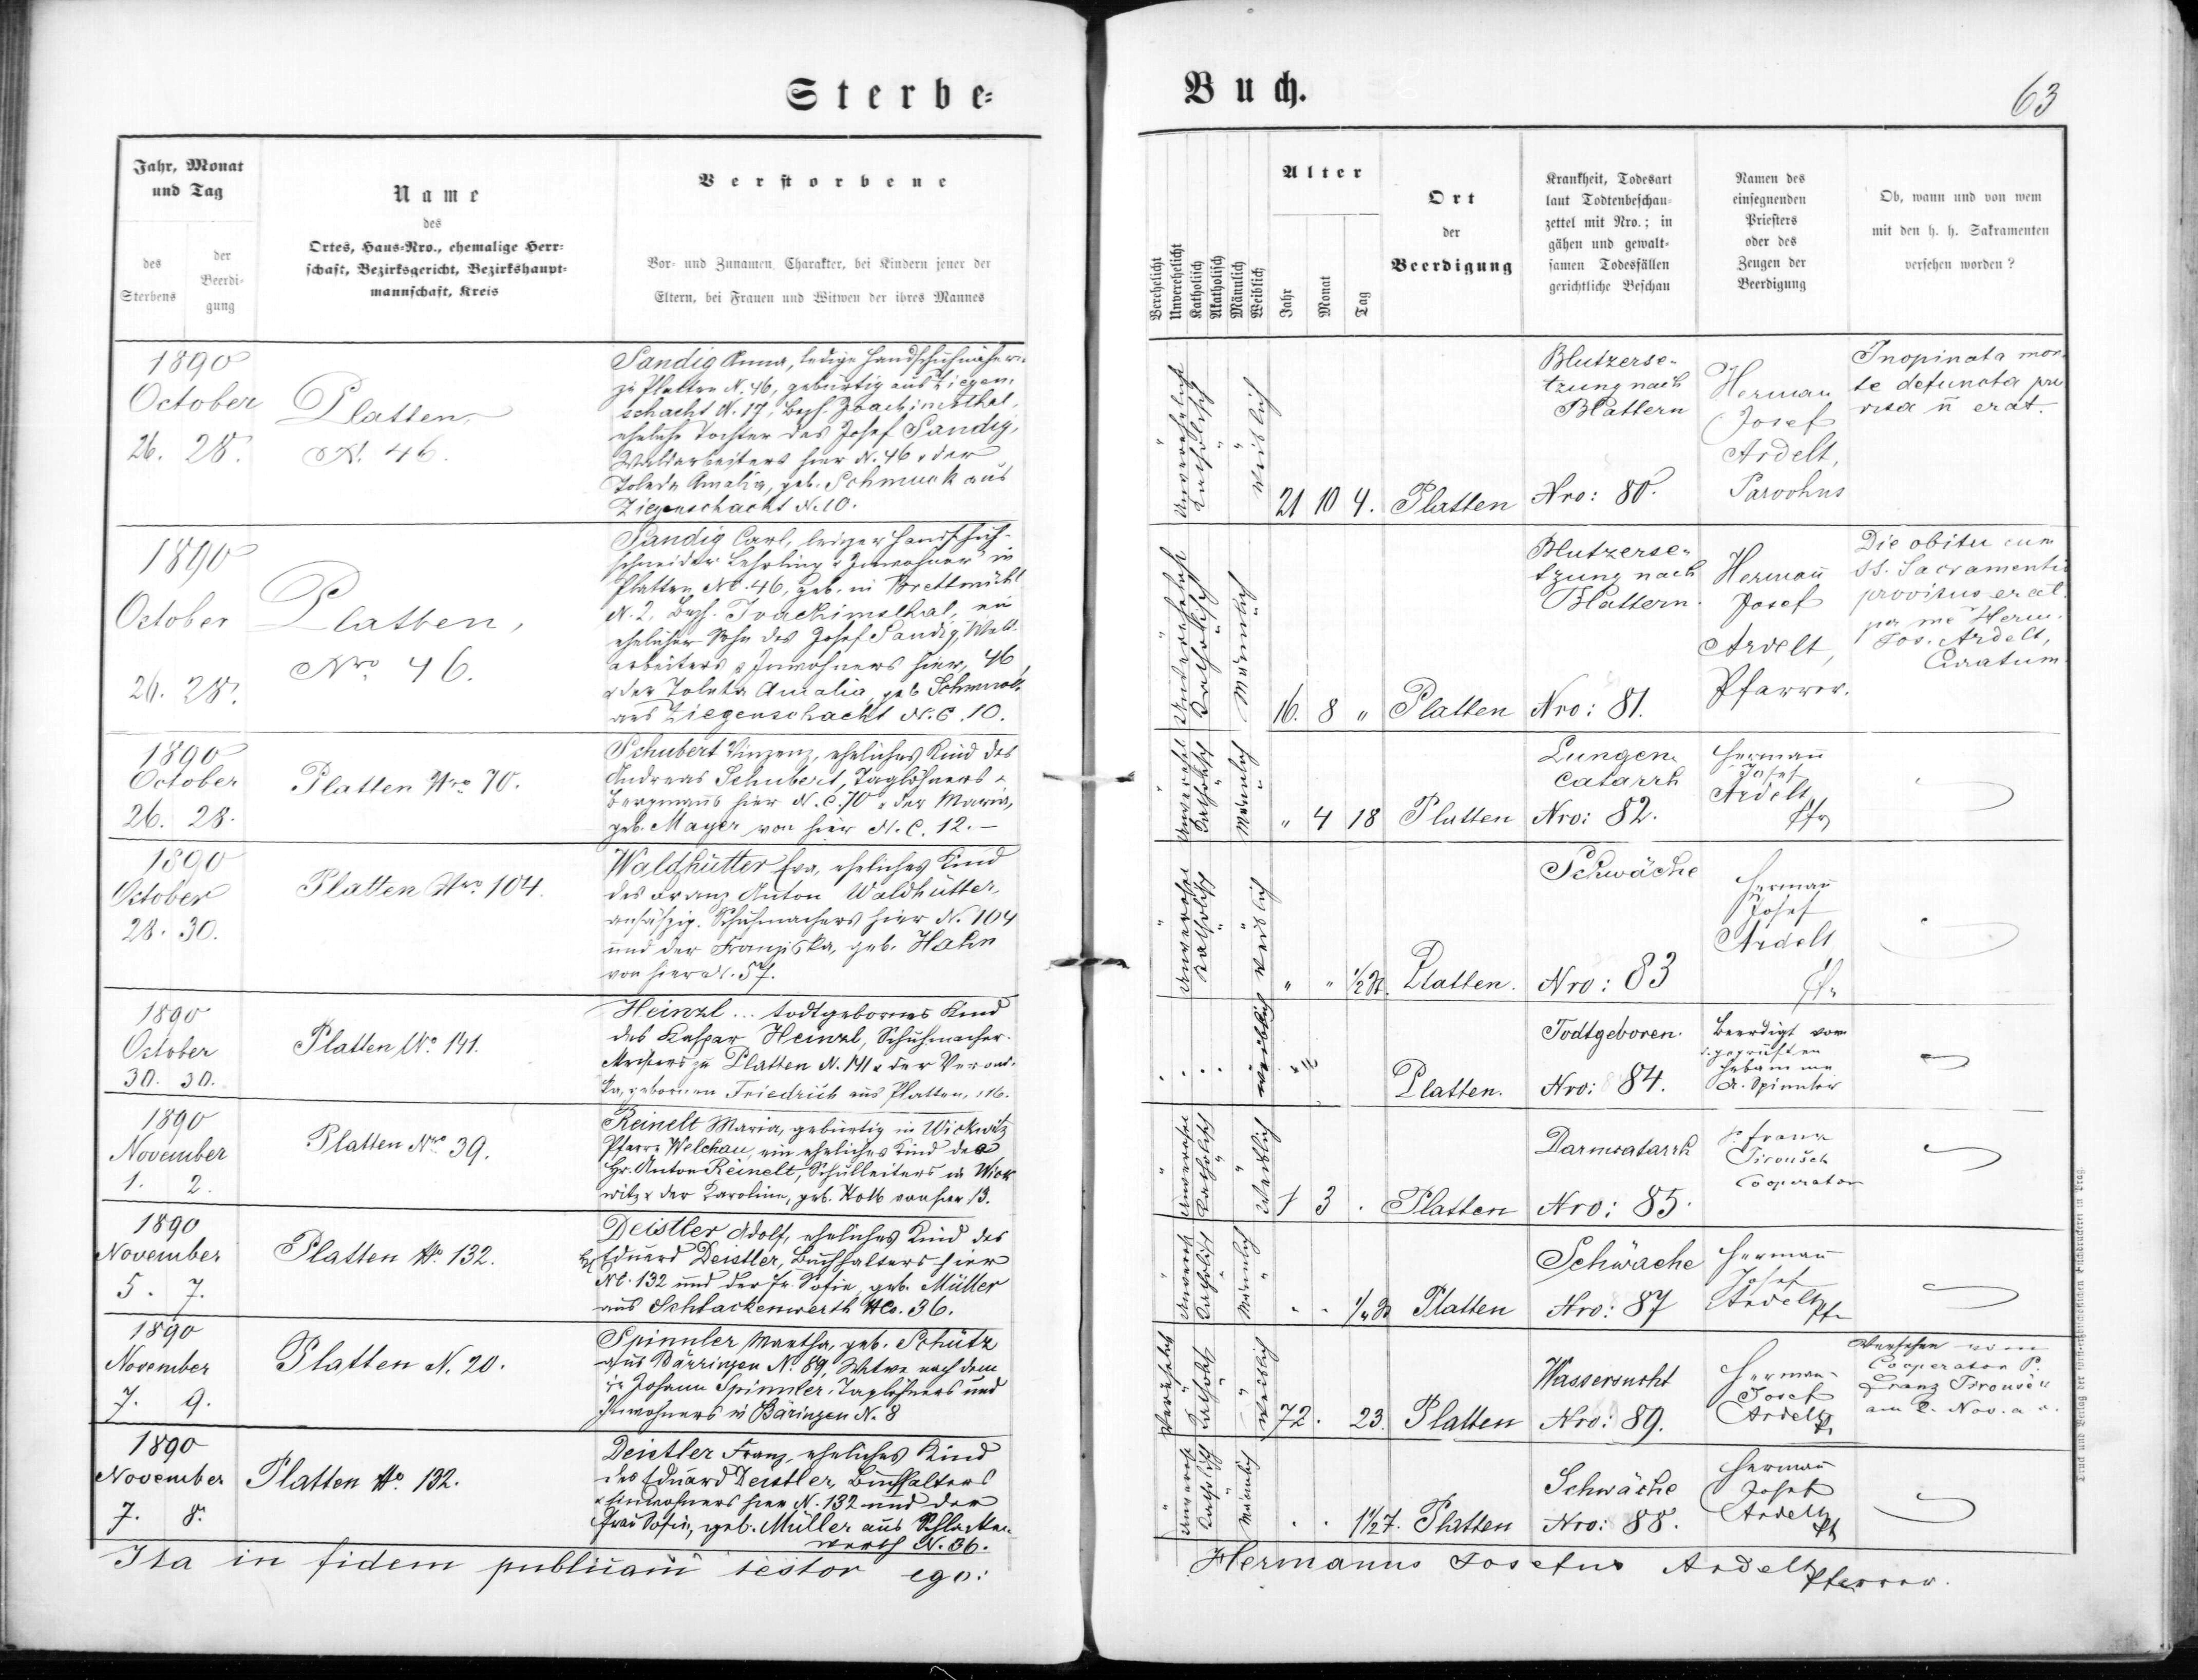 Sterbe-
Buch.
63
Jahr, Monat
und Tag
des
Sterbens
der
Beerdi-
gung
Name
des
Ortes, Haus-Nro., ehemalige Herr-
schaft, Bezirksgericht, Bezirkshaupt-
mannschaft, Kreis
Verstorbene
Vor- und Zunamen, Charakter, bei Kindern jener der
Eltern, bei Frauen und Witwen der ihres Mannes
Verehelicht
Unverehelicht
Katholisch
Akatholisch
Männlich
Weiblich
Alter
Jahr
Monat
Tag
Ort
der
Beerdigung
Krankheit, Todesart
laut Todtenbeschau-
zettel mit Nro.; in
gähen und gewalt-
samen Todesfällen
gerichtliche Beschau
Namen des
einsegnenden
Priesters
oder des
Zeugen der
Beerdigung
Ob, wann und von wem
mit den h. h. Sakramenten
versehen worden?
1890
October
26. 28.
Platten
N. 46.
Sandig Anna, ledige Handschuhnäherin
zu Platten N. 46, gebürtig aus Ziegen-
schacht N. 17, Bzh. Joachimsthal,
eheliche Tochter des Josef Sandig,
Waldarbeiters hier N. 46 u der
Amalia, geb. Schmuck aus
Ziegenschacht N. 10.
unverehelicht
katholisch
weiblich
21 10 4.
Platten
Blutzerse-
tzung nach
Blattern
Nro: 80.
Herman
Josef
Ardelt,
Parochus
Inopinata mor-
te defuncta pro
visa n̄ erat.
1890
October
26. 28.
Platten,
Nro 46.
Sandig Carl, lediger Handschuh-
schneider Lehrling u Inwohner in
Platten N. 46, geb. in Brettmühl
N. 2, Bzh. Joachimsthal, ein
ehelicher Sohn des Josef Sandig, Wald-
arbeiters u Inwohners hier, 46
u der Amalia, geb. Schmuck
aus Ziegenschacht N.C. 10.
Katholisch
Männlich
16. 8 "
Platten
Blutzerse-
tzung nach
Blattern.
Nro: 81.
Hermañ
Josef
Ardelt,
Pfarrer.
Die obitus cum
SS. Sacramentis
provisus erat
per me Herm.
Jos. Ardelt,
Curatum.
1890
October
26. 28.
Platten Nro 70.
Schubert Vinzenz, eheliches Kind des
Andreas Schubert, Taglöhners u
Bergmanns hier N.C. 70 u der Maria,
geb. Mayer von hier N.C. 12. –
Katholisch
Männlich
" 4 18
Platten
Lungen-
catarrh
Nro: 82.
Hermañ
Josef
Ardelt
Pfr
1890
October
28. 30.
Platten Nro 104.
Waldhütter Eva, eheliches Kind
des Franz Anton Waldhütter,
ansäßig. Schuhmachers hier N. 104
und der Franziska, geb. Hahn
von hier N. 57.
Katholisch
weiblich
" " ½ St.
Platten.
Schwäche
Nro: 83
Hermañ
Josef
Ardelt
Pfr
1890
October
30. 30.
Platten No. 141.
Heinzl ... todtgebornes Kind
des Kaspar Heinzl, Schuhmacher-
Meisters zu Platten N. 141 u der Veroni-
ka, gebornen Friedrich aus Platten, 116.
weiblich
Platten.
Todtgeboren.
Nro: 84.
Beerdigt von
d. geprüften
Hebamme
A. Spinnler
1890
November
1. 2.
Platten Nro 39.
Reinelt Maria, gebürtig in Wickwitz
Pfarre Welchau, ein eheliches Kind des
Hr. Anton Reinelt, Schulleiters in Wick
witz u der Karoline, geb. Kolb von hier 13.
Katholisch
Weiblich
1 3 .
Platten
Darmcatarrh
Nro: 85.
P. Franz
Cooperator
1890
November
5. 7.
Platten No. 132.
Deistler Adolf, eheliches Kind des
Eduard Deistler, Buchhalters hier
N. 132 und der Fr. Sofie, geb. Müller
aus Schlackenwerth No. 36.
Katholisch
Männlich
Platten
Schwäche
Nro: 87
Hermañ
Josef
Ardelt
Pfr
1890
November
7. 9.
Platten N. 20.
Spinnler Martha, geb. Schütz
aus Bärringen No. 89, Witwe nach dem
Johann Spinnler, Taglöhners und
Inwohners in Bäringen N. 8
Verehelicht
Katholisch
Weiblich
72. 23
Platten
Wassersucht
Nro: 89.
Herman
Josef
Ardelt
Versehen vom
Cooperator P.
Franz
am 2. Nov. a. c.
1890
November
7. 8.
Platten No. 132.
Deistler Franz, eheliches Kind
des Eduard Deistler, Buchhalters
u Einwohners hier N. 132 und der
Frau Sofie, geb. Müller aus Schlacken-
werth N. 36.
Katholisch
Männlich
Platten
Schwäche
Nro: 88.
Hermañ
Josef
Ardelt
Pfr
Ita in fidem publicam testor ego:
Hermanus Josefus Ardelt
Pfarrer.